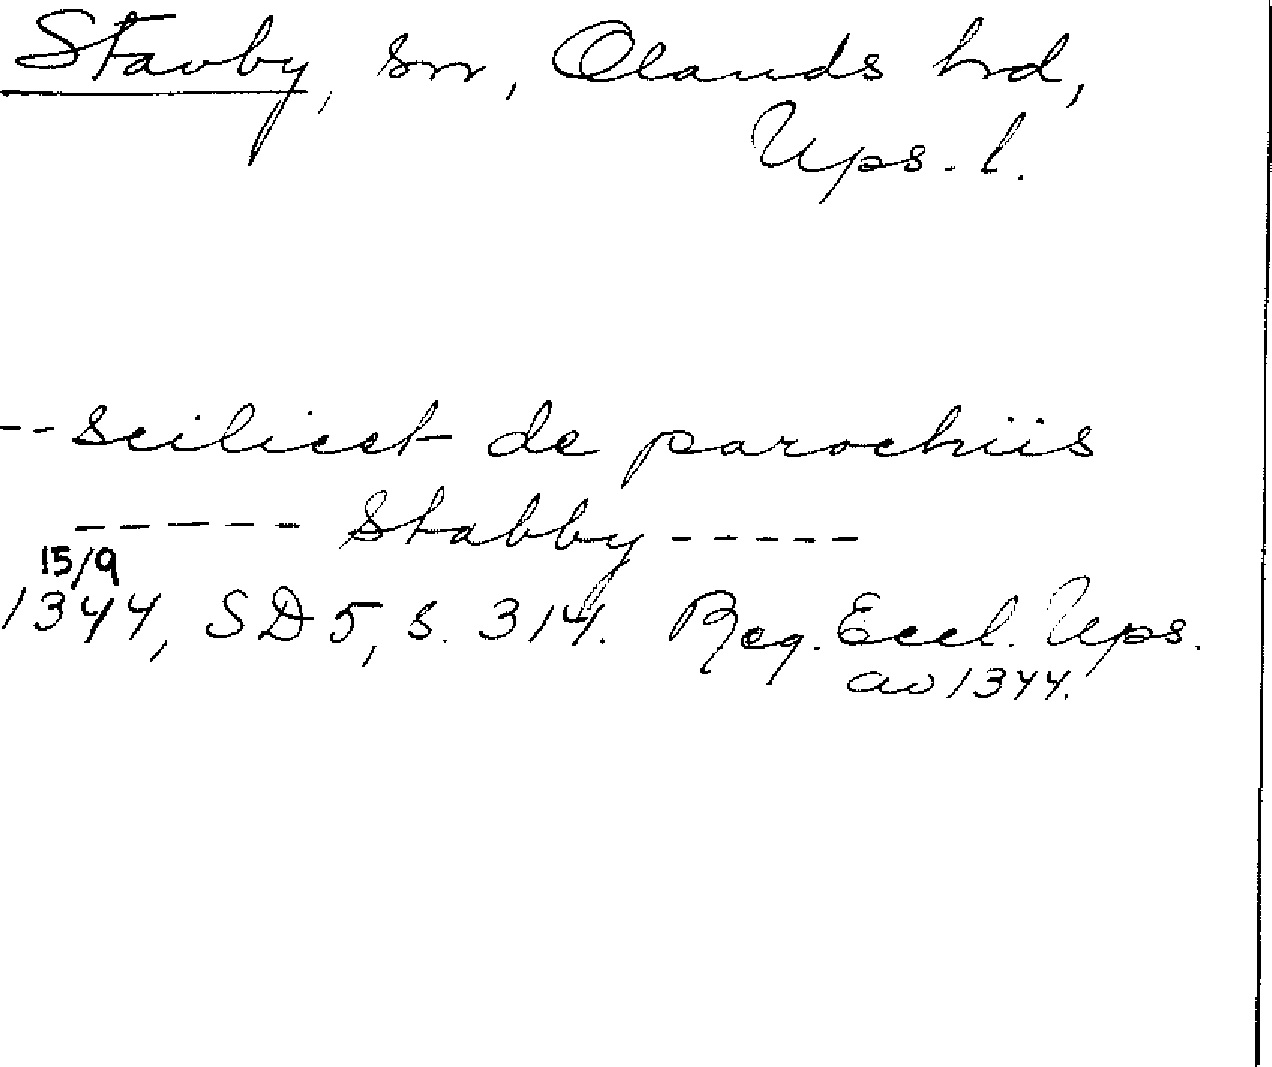 Stavby, sn, Olands hd,
Ups. l.
-- scilicet de parochiis
------ Stabby -----
15/9
1344, SD 5, s. 314. Reg. Eccl. Ups.
av 1344.